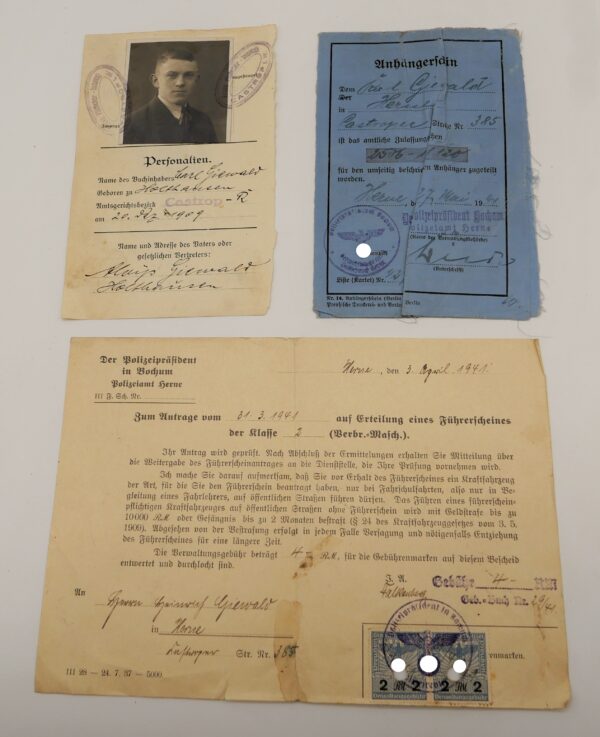 CASTROP
Personalien.
Name des Buchinhabers Karl Giewald
Geboren zu Holthausen
Amtsgerichtsbezirk Castrop-R
am 20. 1909
Name und Adresse des Vaters oder
gesetzlichen Vertreters:
Aloys Giewald
Holthausen
Anhängerschein
Dem Karl Giewald
Der
in Herne
Castroper Straße Nr. 385
ist das amtliche Zulassung
für den umseitig beschrieben Anhänger zugeteilt
worden.
Herne, 27. Mai 19
Polizeipräsident Bochum
Polizeiamt Herne
(Unterschrift)
Liste (Kartei) Nr.
Nr. 14. Anhängerschein (Berlin
Preußische Druckerei- und Ver Berlin
Der Polizeipräsident
in Bochum
Polizeiamt Herne
III F. Sch. Nr.
Herne, den 3. April 1941.
Zum Antrage vom 31.3.1941 auf Erteilung eines Führerscheines
der Klasse 2 (Verbr.-Masch.).
Ihr Antrag wird geprüft. Nach Abschluß der Ermittelungen erhalten Sie Mitteilung über
die Weitergabe des Führerscheinantrages an die Dienststelle, die Ihre Prüfung vornehmen wird.
Ich mache Sie darauf aufmerksam, daß Sie vor Erhalt des Führerscheines ein Kraftfahrzeug
der Art, für die Sie den Führerschein beantragt haben, nur bei Fahrschulfahrten, also nur in Be-
gleitung eines Fahrlehrers, auf öffentlichen Straßen führen dürfen. Das Führen eines führerschein-
pflichtigen Kraftfahrzeuges auf öffentlichen Straßen ohne Führerschein wird mit Geldstrafe bis zu
10000 RM oder Gefängnis bis zu 2 Monaten bestraft (§ 24 des Kraftfahrzeuggesetzes vom 3. 5.
1909). Abgesehen von der Bestrafung erfolgt in jedem Falle Versagung und nötigenfalls Entziehung
des Führerscheines für eine längere Zeit.
Die Verwaltungsgebühr beträgt 4 RM, für die Gebührenmarken auf diesem Bescheid
entwertet und durchlocht sind.
J. A.
Gebühr 4 RM
Geb.-Buch Nr.
An
Herrn Heinrich Giewald
in Herne
Castroper Str. Nr. 385
enmarken.
2 RM 2 2 RM 2
Verwaltungsgebühr Verwaltungsgebühr
III 28 — 24. 7. 37 — 5000